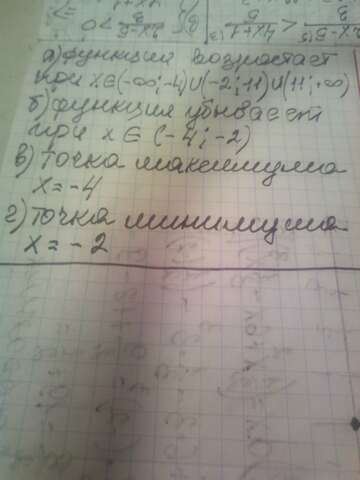 а) функция возрастает
при x ∈ (-∞; -4) ∪ (-2; 11) ∪ (11; +∞)
б) функция убывает
при x ∈ (-4; -2)
в) точка максимума
x = -4
г) точка минимума
x = -2